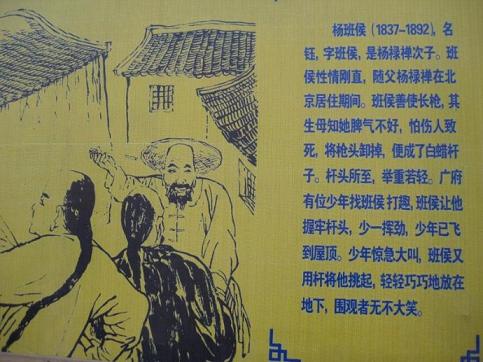 杨班侯（1837-1892），名
钰，字班侯，是杨禄禅次子。班
侯性情刚直。随父杨禄禅在北
京居住期间。班侯善使长枪，其
生母知她脾气不好，怕伤人致
死，将枪头卸掉，便成了白蜡杆
子。杆头所至，举重若轻。广府
有位少年找班侯打趣，班侯让他
握牢杆头，少一挥劲，少年已飞
到屋顶。少年惊急大叫，班侯又
用杆将他挑起，轻轻巧巧地放在
地下，围观者无不大笑。